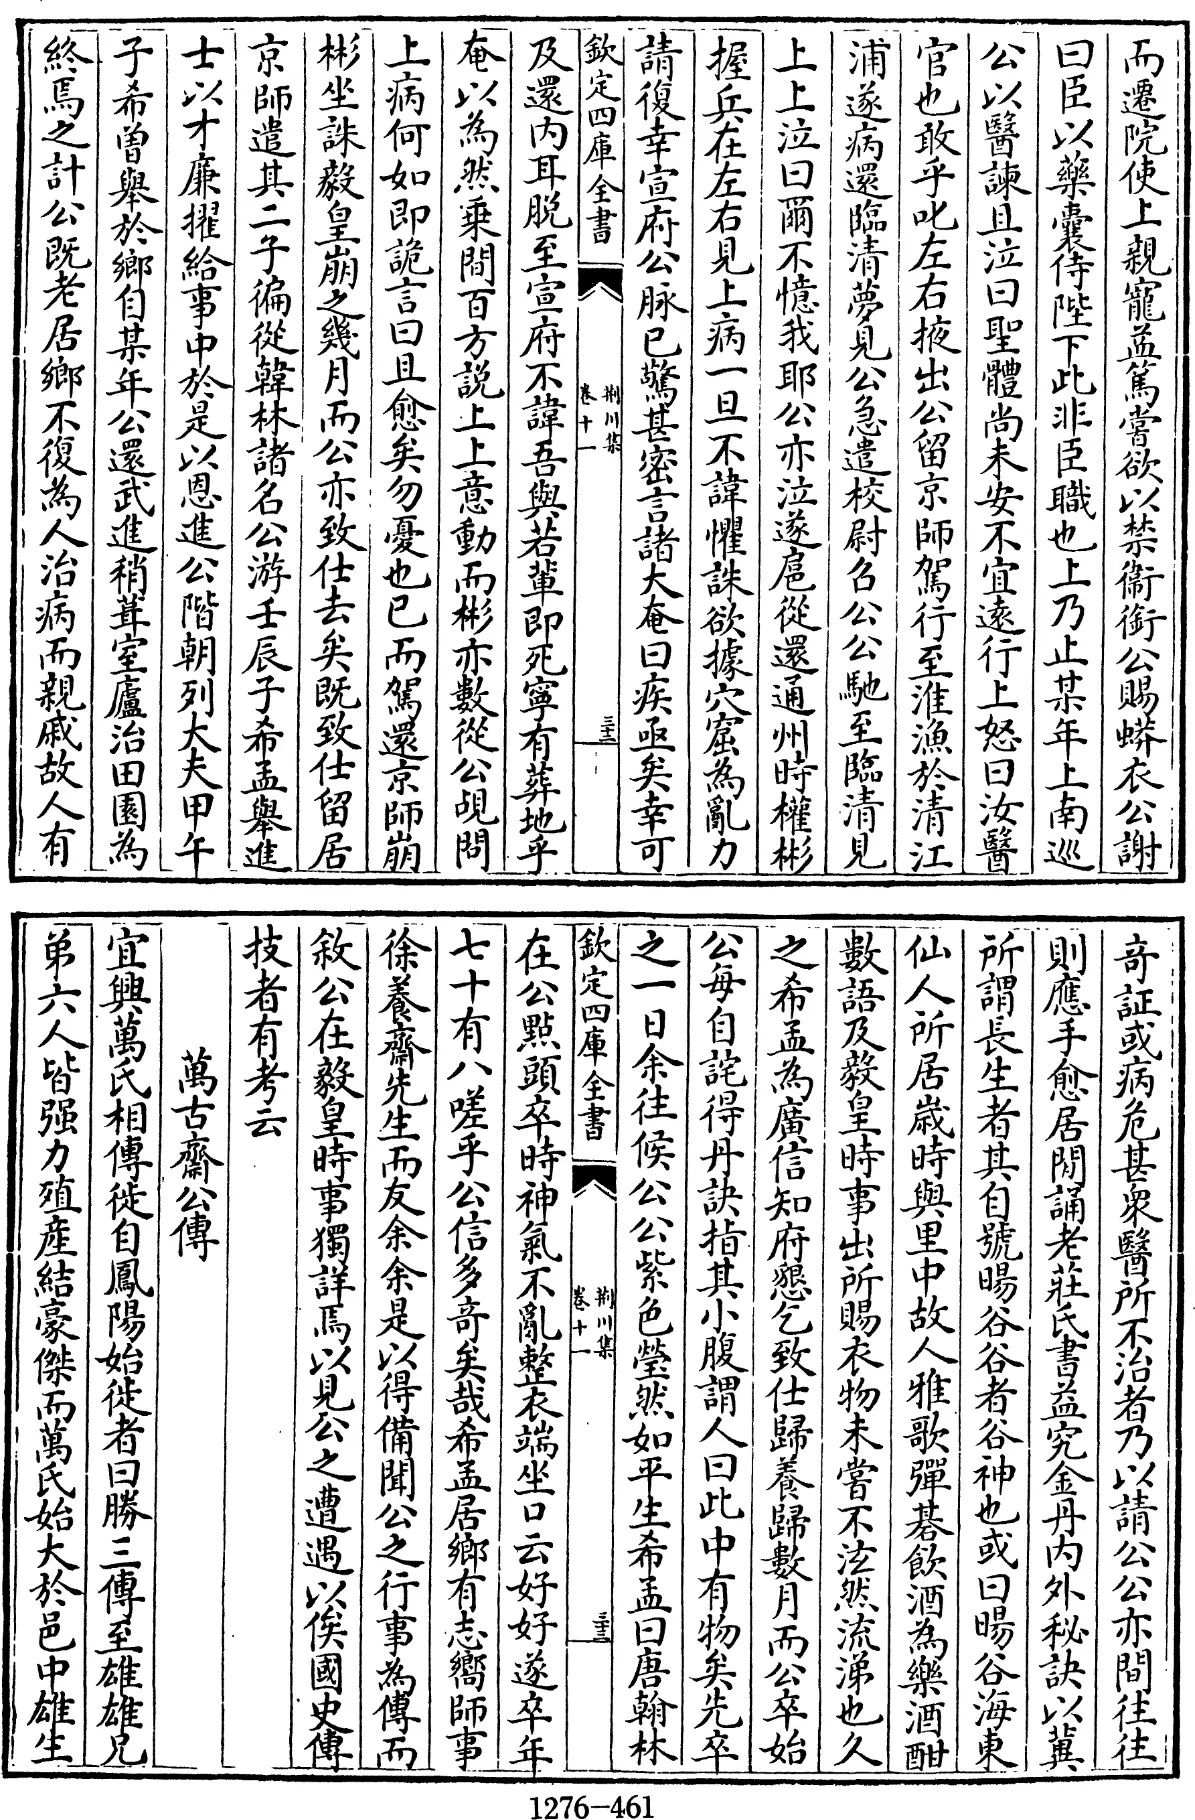 而遷院使上親寵益篤嘗欲以禁衞銜公賜蟒衣公謝
曰臣以藥囊侍陛下此非臣職也上乃止某年上南巡
公以醫諫且泣曰聖體尚未安不宜遠行上怒曰汝醫
官也敢乎叱左右掖出公留京師駕行至淮漁於清江
浦遂病還臨清夢見公急遣校尉召公公馳至臨清見
上上泣曰爾不憶我耶公亦泣遂扈從還通州時權彬
握兵在左右見上病一旦不諱懼誅欲據穴窟為亂力
請復幸宣府公脉已驚甚密言諸大奄曰疾亟矣幸可
欽定四庫全書
荆川集
卷十一
三十二
及還内耳脱至宣府不諱吾與若輩即死寧有葬地乎
奄以為然乘間百方説上上意動而彬亦數從公覘問
上病何如即詭言曰且愈矣勿憂也已而駕還京師崩
彬坐誅毅皇崩之幾月而公亦致仕去矣既致仕留居
京師遣其二子徧從韓林諸名公游壬辰子希孟舉進
士以才廉擢給事中於是以恩進公階朝列大夫甲午
子希曽舉於鄉自某年公還武進稍葺室廬治田園為
終焉之計公既老居鄉不復為人治病而親戚故人有
竒証或病危甚衆醫所不治者乃以請公公亦間往往
則應手愈居閒誦老莊氏書益究金丹内外秘訣以冀
所謂長生者其自號暘谷谷者谷神也或曰暘谷海東
仙人所居歳時與里中故人雅歌彈碁飲酒為樂酒酣
數語及毅皇時事出所賜衣物未嘗不泫然流涕也久
之希孟為廣信知府懇乞致仕歸養歸數月而公卒始
公每自詫得丹訣指其小腹謂人曰此中有物矣先卒
之一日余往候公公紫色瑩然如平生希孟曰唐翰林
欽定四庫全書
荆川集
卷十一
三十三
在公點頭卒時神氣不亂整衣端坐口云好好遂卒年
七十有八嗟乎公信多竒矣哉希孟居鄉有志嚮師事
徐養齋先生而友余余是以得備聞公之行事為傳而
敘公在毅皇時事獨詳焉以見公之遭遇以俟國史傳
技者有考云
萬古齋公傳
宜興萬氏相傳徙自鳳陽始徙者曰勝三傳至雄雄兄
弟六人皆强力殖産結豪傑而萬氏始大於邑中雄生
1276-461